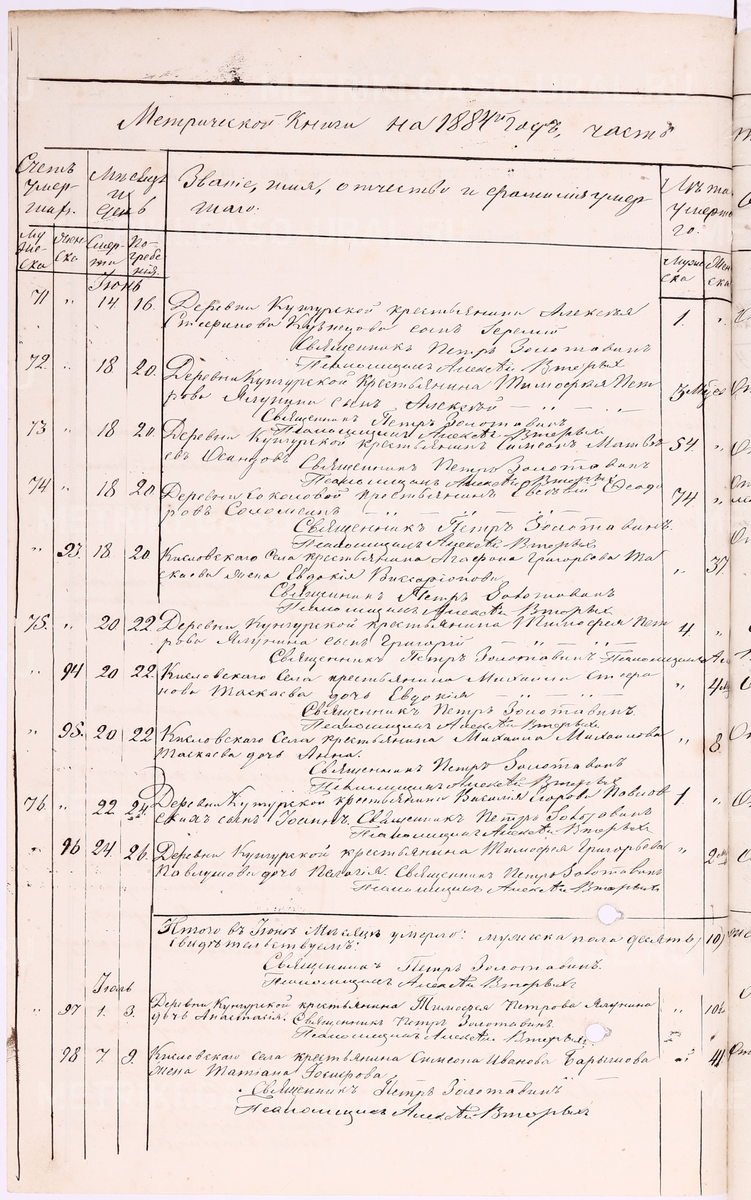 Метрической Книги на 1884й Годъ, часть
Счетъ умер-шихъ.
Мѣсяцъ и день
Званіе, имя, отчество и фамилія умер-
шаго.
Лѣта умерша-го.
Му-же-ска
Жен-ска
Смер-ти
По-гребе-нія
Муже-ска
Жен-ска
Іюнь
71 " 14 16. Деревни Кунгурской крестьянина Алексѣя 1. "
Стефанова Кузнецова сынъ Іеремій
Священникъ Петръ Золотавинъ
Псаломщикъ Алексѣй Вторыхъ
72. " 18 20. Деревни Кунгурской крестьянина Тимофея Пет-
рова Ялунина сынъ Алексѣй " — " — 3 мѣс
Священникъ Петръ Золотавинъ
Псаломщикъ Алексѣй Вторыхъ
73 " 18 20. Деревни Кунгурской крестьянинъ Симеонъ Матвѣ- 54. "
евъ Осинцовъ Священникъ Петръ Золотавинъ
Псаломщикъ Алексѣй Вторыхъ
74 " 18 20 Деревни Соколовой крестьянинъ Евсевій Ѳеодо- 74 "
ровъ Соломеинъ — " — " — " —
Священникъ Петръ Золотавинъ.
Псаломщикъ Алексѣй Вторыхъ
" 93. 18 20 Кисловскаго Села крестьянина Агафона Григорьева Та- " 37.
скаева жена Евдокія Виссаріонова.
Священникъ Петръ Золотавинъ
Псаломщикъ Алексѣй Вторыхъ
75. " 20 22. Деревни Кунгурской крестьянина Тимофея Пет- 4. "
рова Ялунина сынъ Григорій — " — " —
Священникъ Петръ Золотавинъ Псаломщикъ Ал
" 94 20 22. Кисловскаго Села крестьянина Михаила Стефа- " 4 м
нова Таскаева дочь Евдокія — " — " —
Священникъ Петръ Золотавинъ.
Псаломщикъ Алексѣй Вторыхъ
" 95. 20 22 Кисловскаго Села крестьянина Михаила Михайлова " 8
Таскаева дочь Анна.
Священникъ Петръ Золотавинъ
Псаломщикъ Алексѣй Вторыхъ
76. " 22 24. Деревни Кунгурской крестьянина Василія Егорова Павлов- 1 "
скихъ сынъ Іоаннъ. Священникъ Петръ Золотавинъ
Псаломщикъ Алексѣй Вторыхъ
" 96 24. 26. Деревни Кунгурской крестьянина Тимофея Григорьева " 2
Павлушова дочь Пелагія. Священникъ Петръ Золотавинъ
Псаломщикъ Алексѣй Вторыхъ
Итого въ Іюнѣ Мѣсяцѣ умерло: мужеска пола десять, 10,
Свидѣтельствуемъ:
Священникъ Петръ Золотавинъ.
Псаломщикъ Алексѣй Вторыхъ
Іюль
" 97 1. 3. Деревни Кунгурской крестьянина Тимофея Петрова Ялунина " 10
дочь Анастасія. Священникъ Петръ Золотавинъ
Псаломщикъ Алексѣй Вторыхъ
98 7 9. Кисловскаго Села крестьянина Симеона Иванова Барышова 41
жена Татіана
Священникъ Петръ Золотавинъ
Псаломщикъ Алексѣй Вторыхъ